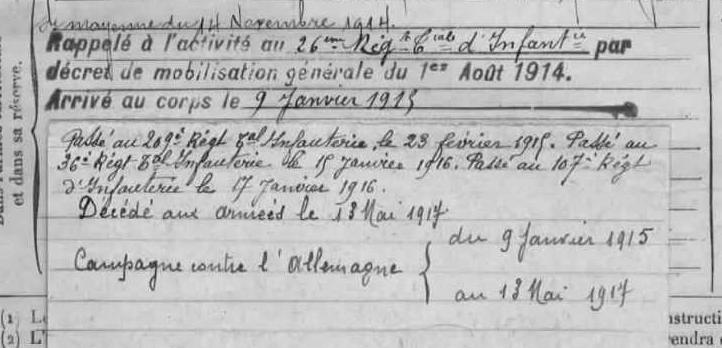 de mayenne du 14 Novembre 1914.
Rappelé à l'activité au 26eme Régt Tial d'Infantie par
décret de mobilisation générale du 1er Août 1914.
Arrivé au corps le 9 Janvier 1915
Passé au 209e Régt Tal Infanterie, le 23 février 1915. Passé au
36e Régt Tal Infanterie le 15 Janvier 1916. Passé au 107e Régt
d'Infanterie le 17 Janvier 1916.
Décédé aux armées le 13 Mai 1917
Campagne contre l'Allemagne
du 9 Janvier 1915
au 13 Mai 1917
et dans sa réserve.
(1) L
(2) L'
nstructi
endra